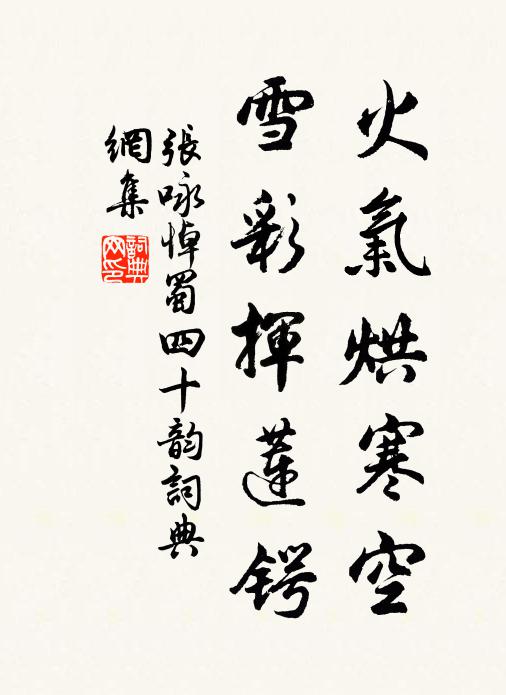 火氣烘寒空
雪彩揮蓮鍔
張咏悼蜀四十韵詞典
網集
詞典
网印